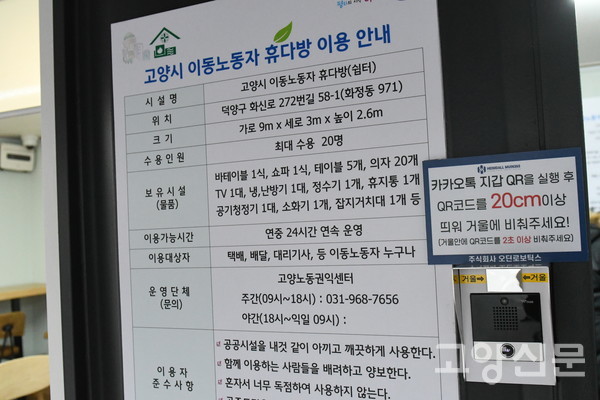 고양시 이동노동자 휴다방 이용 안내
시 설 명
고양시 이동노동자 휴다방(쉼터)
위 치
덕양구 화신로 272번길 58-1(화정동 971)
크 기
가로 9m x 세로 3m x 높이 2.6m
수용인원
최대 수용 20명
보유시설
(물품)
바테이블 1식, 쇼파 1식, 테이블 5개, 의자 20개
TV 1대, 냉,난방기 1대, 정수기 1개, 휴지통 1개
공기청정기 1대, 소화기 1개, 잡지거치대 1개 등
이용가능시간
연중 24시간 연속 운영
이용대상자
택배, 배달, 대리기사, 등 이동노동자 누구나
운영단체
(문의)
고양노동권익센터
주간(09시~18시) : 031-968-7656
야간(18시~익일 09시) :
이 용 자
준수사항
공공시설을 내것 같이 아끼고 깨끗하게 사용한다.
함께 이용하는 사람들을 배려하고 양보한다.
혼자서 너무 독점하여 사용하지 않는다.
카카오톡 지갑 QR을 실행 후
QR코드를 20cm이상
띄워 거울에 비춰주세요!
(거울안에 QR코드를 2초 이상 비춰주세요)
주식회사 오딘로보틱스
거울
거울
고양신문